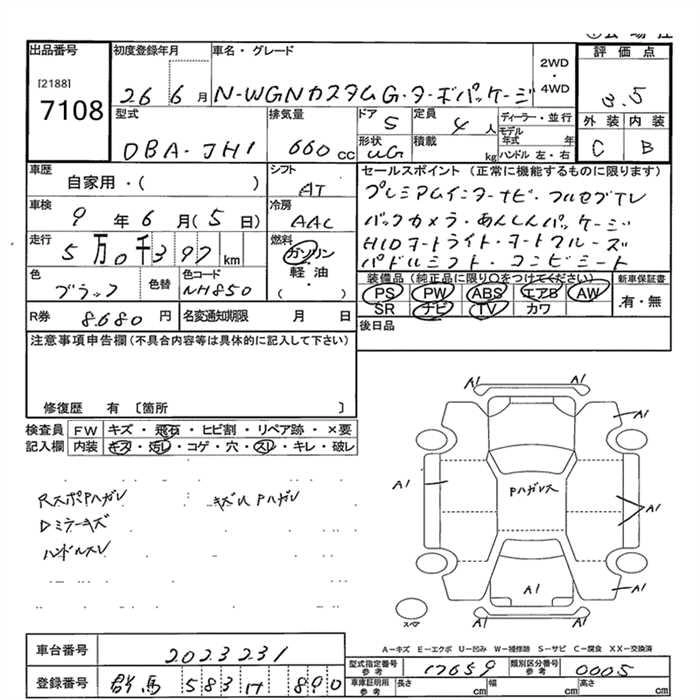 出品番号
[2188]
7108
初度登録年月
26 6月
車名・グレード
N-WGNカスタムG・ターボパッケージ
2WD
・
4WD
評価点
3.5
外装 内装
C B
型式
DBA-JH1
排気量
660cc
ドア
5
定員
4人
形状
積載
kg
ディーラー・並行
モデル
年式 年
ハンドル 左・右
車歴
自家用・( )
シフト
AT
車検
9年6月(5日)
冷房
AAC
走行
5万0千397km
燃料
ガソリン
軽油
( ・ )
色
ブラック
色替
色コード
NH850
R券
8680円
名変通知期限 月 日
セールスポイント(正常に機能するものに限ります)
プレミアムインターナビ・フルセグTV
バックカメラ・あんしんパッケージ
HIDオートライト・オートクルーズ
パドルシフト・コンビシート
装備品(純正品に限り○をつけてください)
PS PW ABS エアB AW
SR ナビ TV カワ
新車保証書
有・無
後日品
注意事項申告欄(不具合内容等は具体的に記入して下さい)
修復歴 有〔箇所 〕
検査員 FW キズ・飛石・ヒビ割・リペア跡・×要
記入欄 内装 キズ・汚レ・コゲ・穴・スレ・キレ・破レ
RスポPハガレ
Dミラーキズ
ハンドルスレ
A1 A1
A1 A1
A1
PハガレA1
A1
A1
A1 A1
スペア
A-キズ E-エクボ U-凹み W-補修跡 S-サビ C-腐食 XX-交換済
車台番号 2023231
登録番号 群馬 583 890
型式指定番号
参考
17659
類別区分番号
参考
0005
車庫証明用
参考
長さ cm 幅 cm 高さ cm